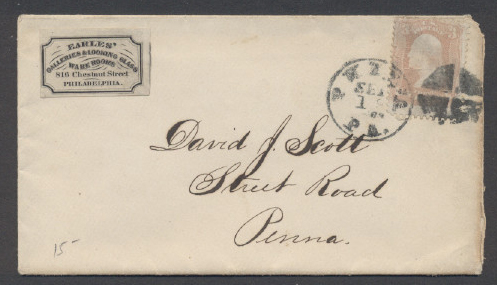 EARLES'
GALLERIES & LOOKING GLASS
WARE ROOMS
816 Chestnut Street
PHILADELPHIA.
PHIL
SEP
PA.
3
David J. Scott
Street Road
Penna.
15-